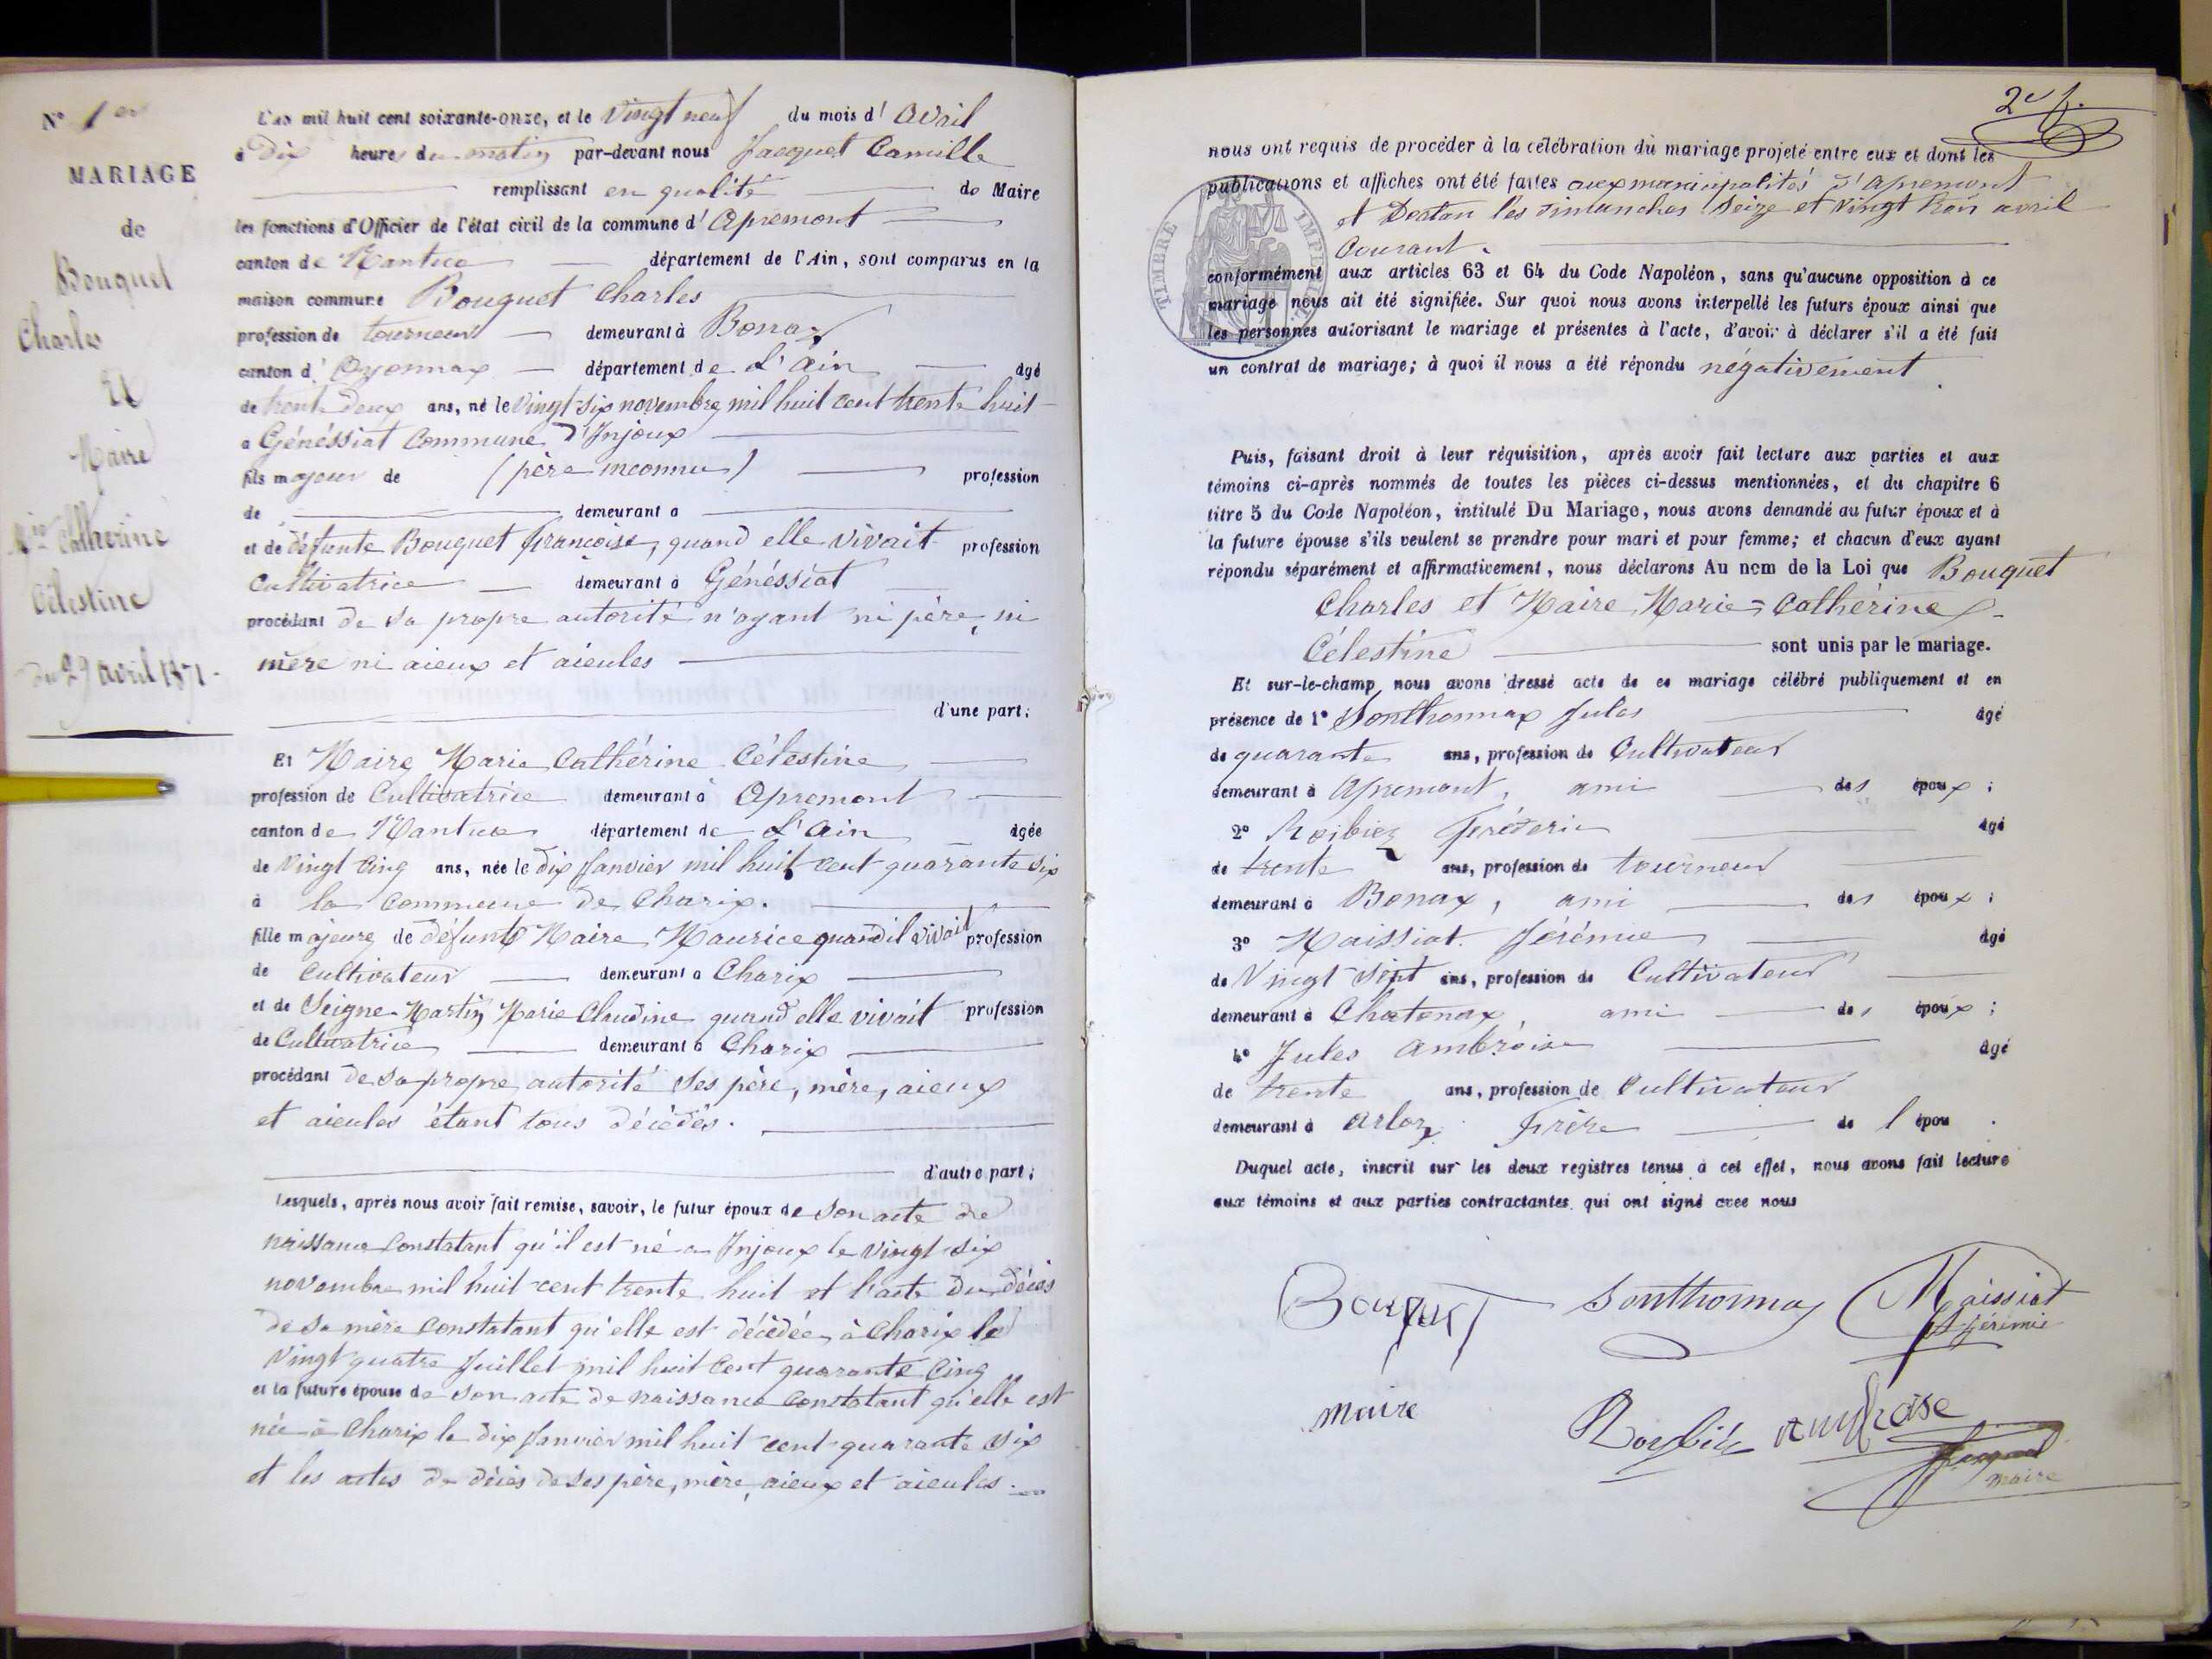 N° 1er
MARIAGE
de
Bouquet
Charles
Et
Maire
Mie Catherine
Célestine
du 29 avril 1871.
L'an mil huit cent soixante-onze, et le Vingt neuf du mois d'Avril
à Dix heures du matin par-devant nous Jacquet Camille
remplissant en qualité de Maire
les fonctions d'Officier de l'état civil de la commune d'Apremont
canton de Nantua département de l'Ain, sont comparus en la
maison commune Bouquet Charles
profession de tourneur demeurant à Bonaz
canton d'Oyonnax département de L'Ain âgé
de trente deux ans, né le Vingt-six novembre mil huit cent trente huit
a Généssiat Commune d'Injoux
fils majeur de (père inconnu) profession
de demeurant a
et de défunte Bouquet françoise, quand elle vivait profession
Cultivatrice demeurant à Généssiat
procédant de sa propre autorité n'ayant ni père, ni
mère ni aieux et aieules
d'une part;
Et Maire Marie Cathérine Célestine
profession de Cultivatrice demeurant à Apremont
canton de Nantua département de L'Ain âgée
de Vingt Cinq ans, née le Dix Janvier mil huit cent quarante six
à la Commune de Charix.
fille majeure de défunt Maire Maurice quand il vivait profession
de Cultivateur demeurant a Charix
et de Seigne-Martin Marie Claudine quand elle vivait profession
de Cultivatrice demeurant à Charix
procédant de sa propre autorité ses père, mère, aieux
et aieules étant tous décédés.
d'autre part;
Lesquels, après nous avoir fait remise, savoir, le futur époux de son acte de
naissance constatant qu'il est né a Injoux le Vingt-six
novembre mil huit-cent trente huit et l'acte du décès
de sa mère constatant qu'elle est décédée à Charix le
Vingt quatre Juillet mil huit Cent quarante Cinq
et la future épouse de son acte de naissance constatant qu'elle est
née à Charix le Dix Janvier mil huit-cent-quarante six
et les actes de décès de ses père, mère, aieux et aieules.
2e f.
nous ont requis de procéder à la célébration du mariage projeté entre eux et dont les
publications et affiches ont été faites aux municipalités d'Apremont
et Dortan les dimanches Seize et Vingt trois avril
Courant.
TIMBRE IMPÉRIAL
conformément aux articles 63 et 64 du Code Napoléon, sans qu'aucune opposition à ce
mariage nous ait été signifiée. Sur quoi nous avons interpellé les futurs époux ainsi que
les personnes autorisant le mariage et présentes à l'acte, d'avoir à déclarer s'il a été fait
un contrat de mariage; à quoi il nous a été répondu négativement.
Puis, faisant droit à leur réquisition, après avoir fait lecture aux parties et aux
témoins ci-après nommés de toutes les pièces ci-dessus mentionnées, et du chapitre 6
titre 5 du Code Napoléon, intitulé Du Mariage, nous avons demandé au futur époux et à
la future épouse s'ils veulent se prendre pour mari et pour femme; et chacun d'eux ayant
répondu séparément et affirmativement, nous déclarons Au nom de la Loi que Bouquet
Charles et Maire Marie=Cathérine
Célestine sont unis par le mariage.
Et sur-le-champ nous avons dressé acte de ce mariage célébré publiquement et en
présence de 1° Sonthonnax Jules âgé
de quarante ans, profession de Cultivateur
demeurant à Apremont, ami des époux;
2° Roybier Fréderic âgé
de trente ans, profession de tourneur
demeurant à Bonaz, ami des époux;
3° Maissiat Jérémie âgé
de Vingt Sept ans, profession de Cultivateur
demeurant à Chatonax, ami des époux;
4° Jules Ambroise âgé
de trente ans, profession de Cultivateur
demeurant à Arloz Frère de l'épou.
Duquel acte, inscrit sur les deux registres tenus à cet effet, nous avons fait lecture
aux témoins et aux parties contractantes qui ont signé avec nous
Bouquet Sonthonnax Maissiat
Jérémie
Maire Roybier Ambroise
Jacquet
maire